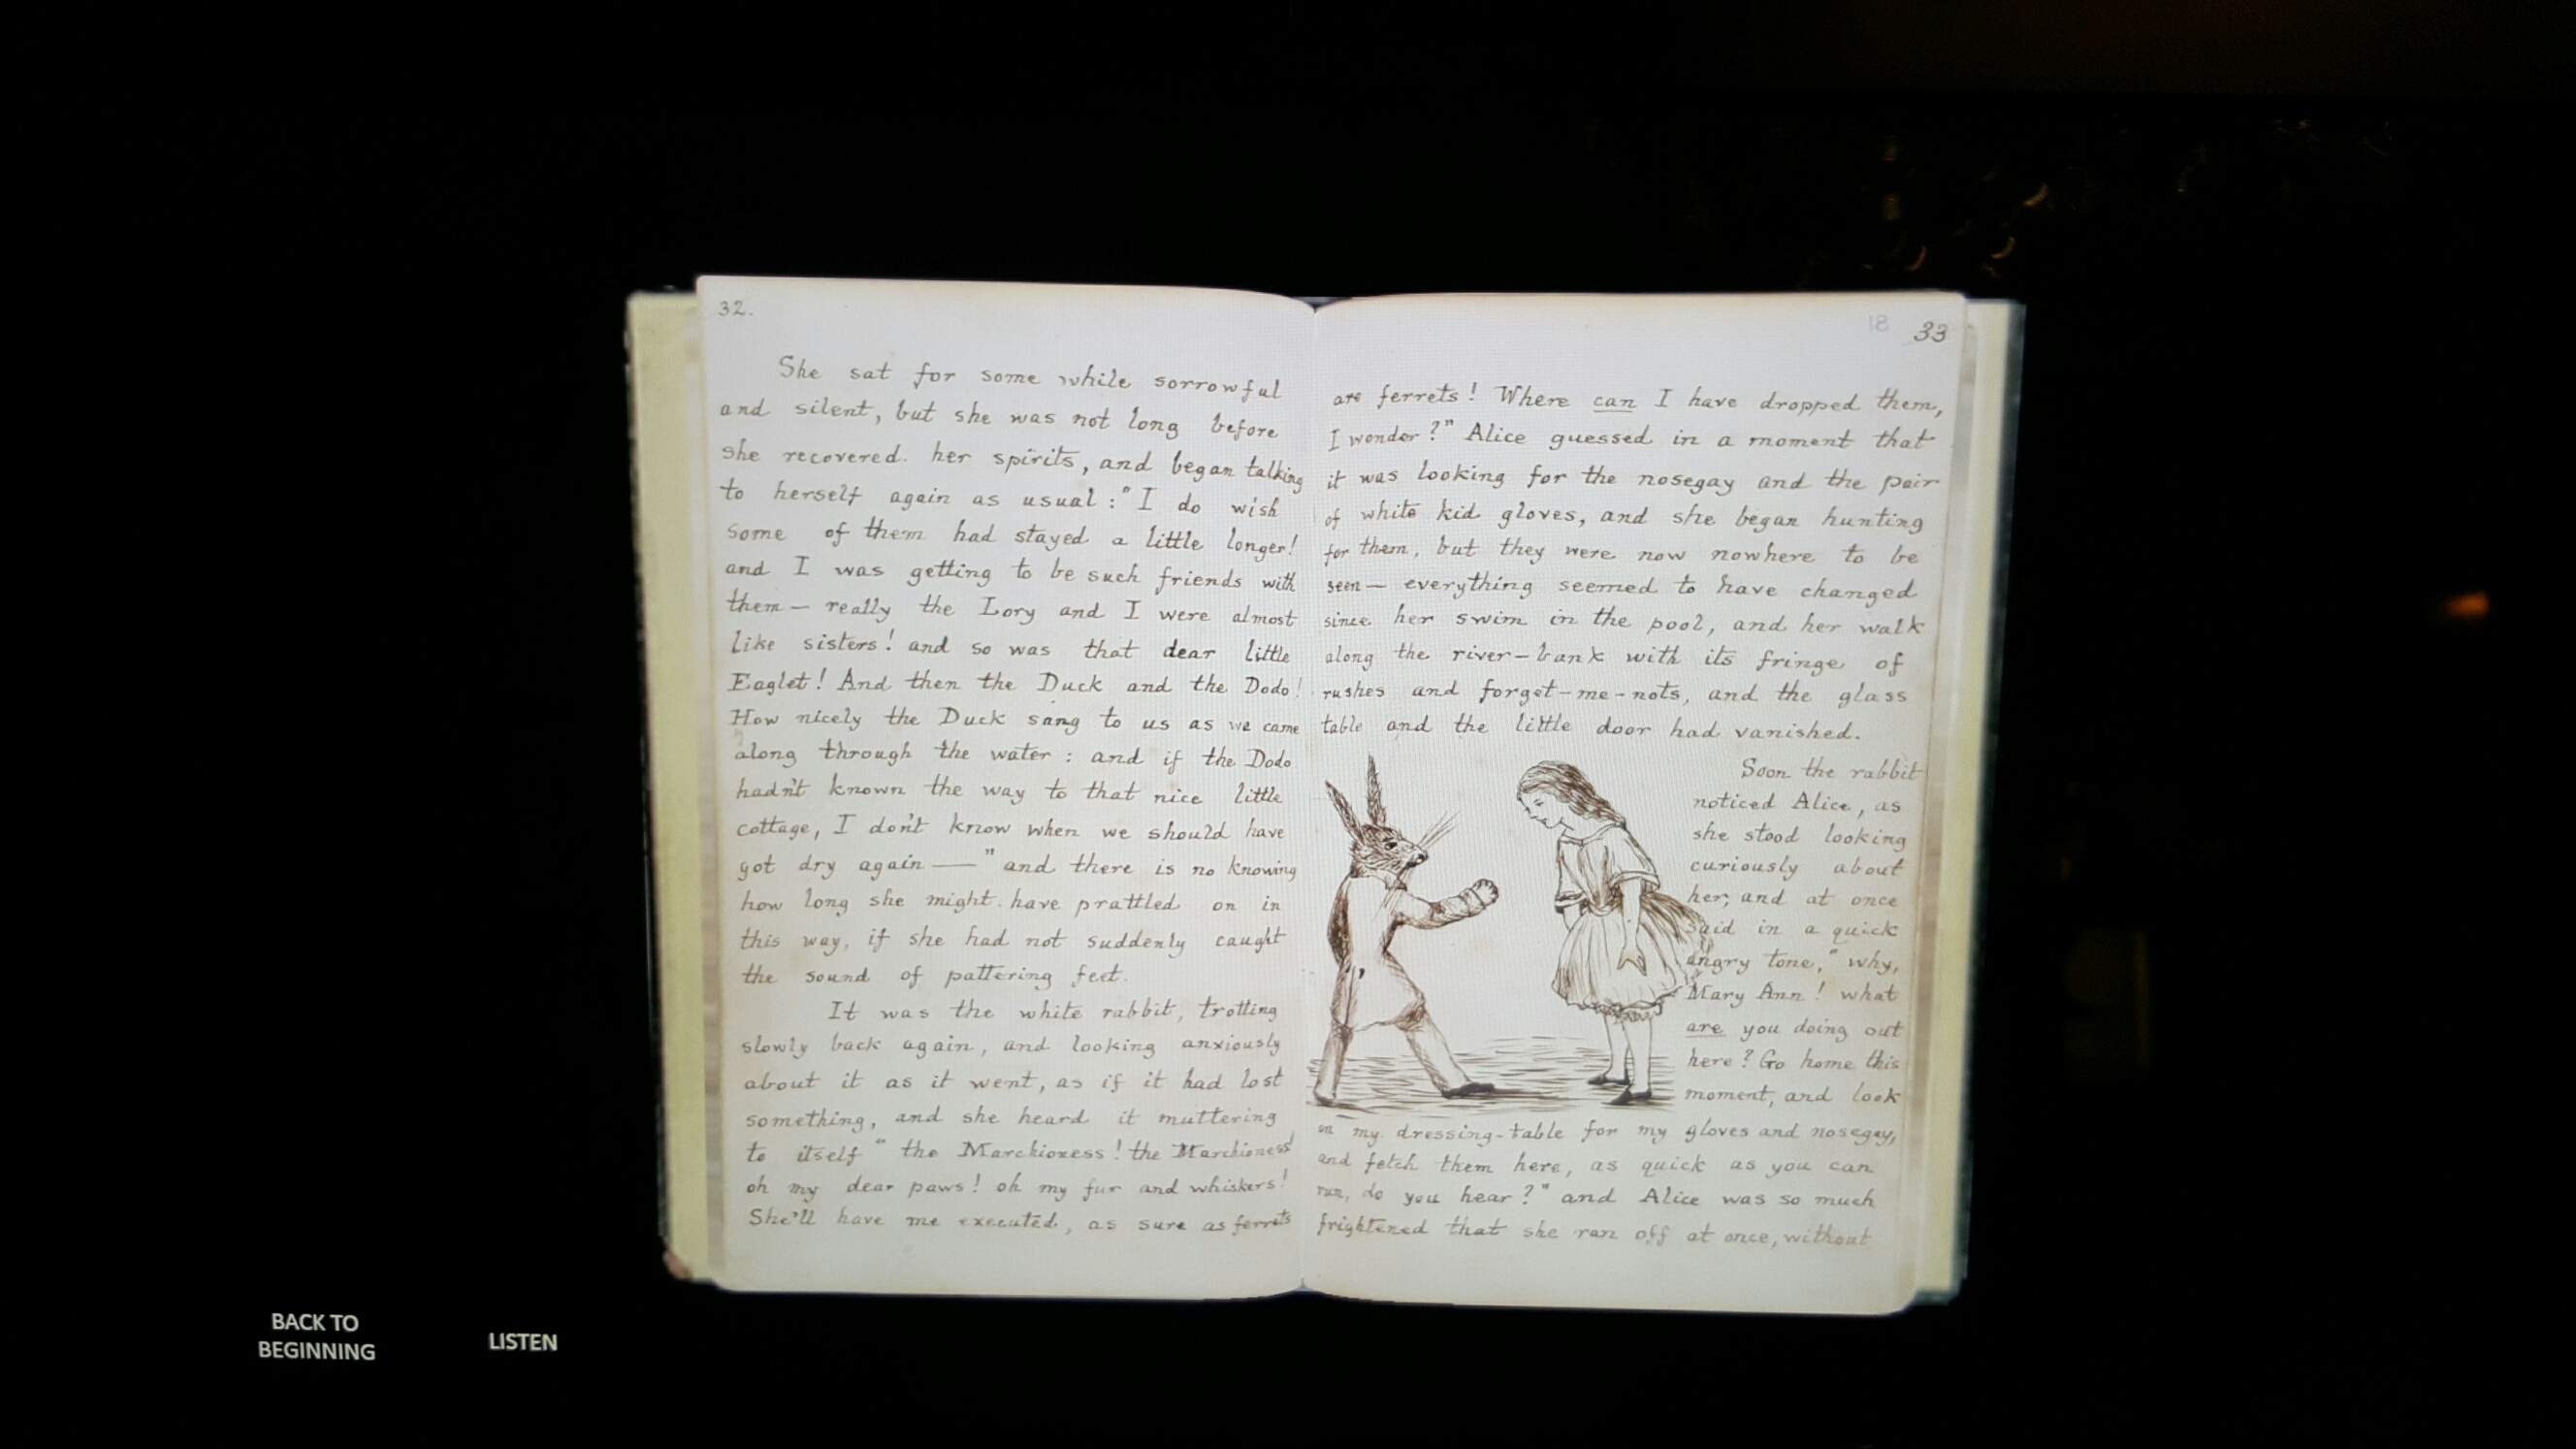 32.
She sat for some while sorrowful
and silent, but she was not long before
she recovered her spirits, and began talking
to herself again as usual : "I do wish
some of them had stayed a little longer!
and I was getting to be such friends with
them — really the Lory and I were almost
like sisters! and so was that dear little
Eaglet! And then the Duck and the Dodo!
How nicely the Duck sang to us as we came
along through the water : and if the Dodo
hadn't known the way to that nice little
cottage, I don't know when we should have
got dry again —" and there is no knowing
how long she might have prattled on in
this way, if she had not suddenly caught
the sound of pattering feet.
It was the white rabbit, trotting
slowly back again, and looking anxiously
about it as it went, as if it had lost
something, and she heard it muttering
to itself "the Marchioness! the Marchioness!
oh my dear paws! oh my fur and whiskers!
She'll have me executed, as sure as ferrets
18 33
are ferrets! Where can I have dropped them,
I wonder?" Alice guessed in a moment that
it was looking for the nosegay and the pair
of white kid gloves, and she began hunting
for them, but they were now nowhere to be
seen — everything seemed to have changed
since her swim in the pool, and her walk
along the river-bank with its fringe of
rushes and forget-me-nots, and the glass
table and the little door had vanished.
Soon the rabbit
noticed Alice, as
she stood looking
curiously about
her, and at once
said in a quick
angry tone, "why,
Mary Ann! what
are you doing out
here? Go home this
moment, and look
on my dressing-table for my gloves and nosegay,
and fetch them here, as quick as you can
run, do you hear?" and Alice was so much
frightened that she ran off at once, without
BACK TO
BEGINNING
LISTEN